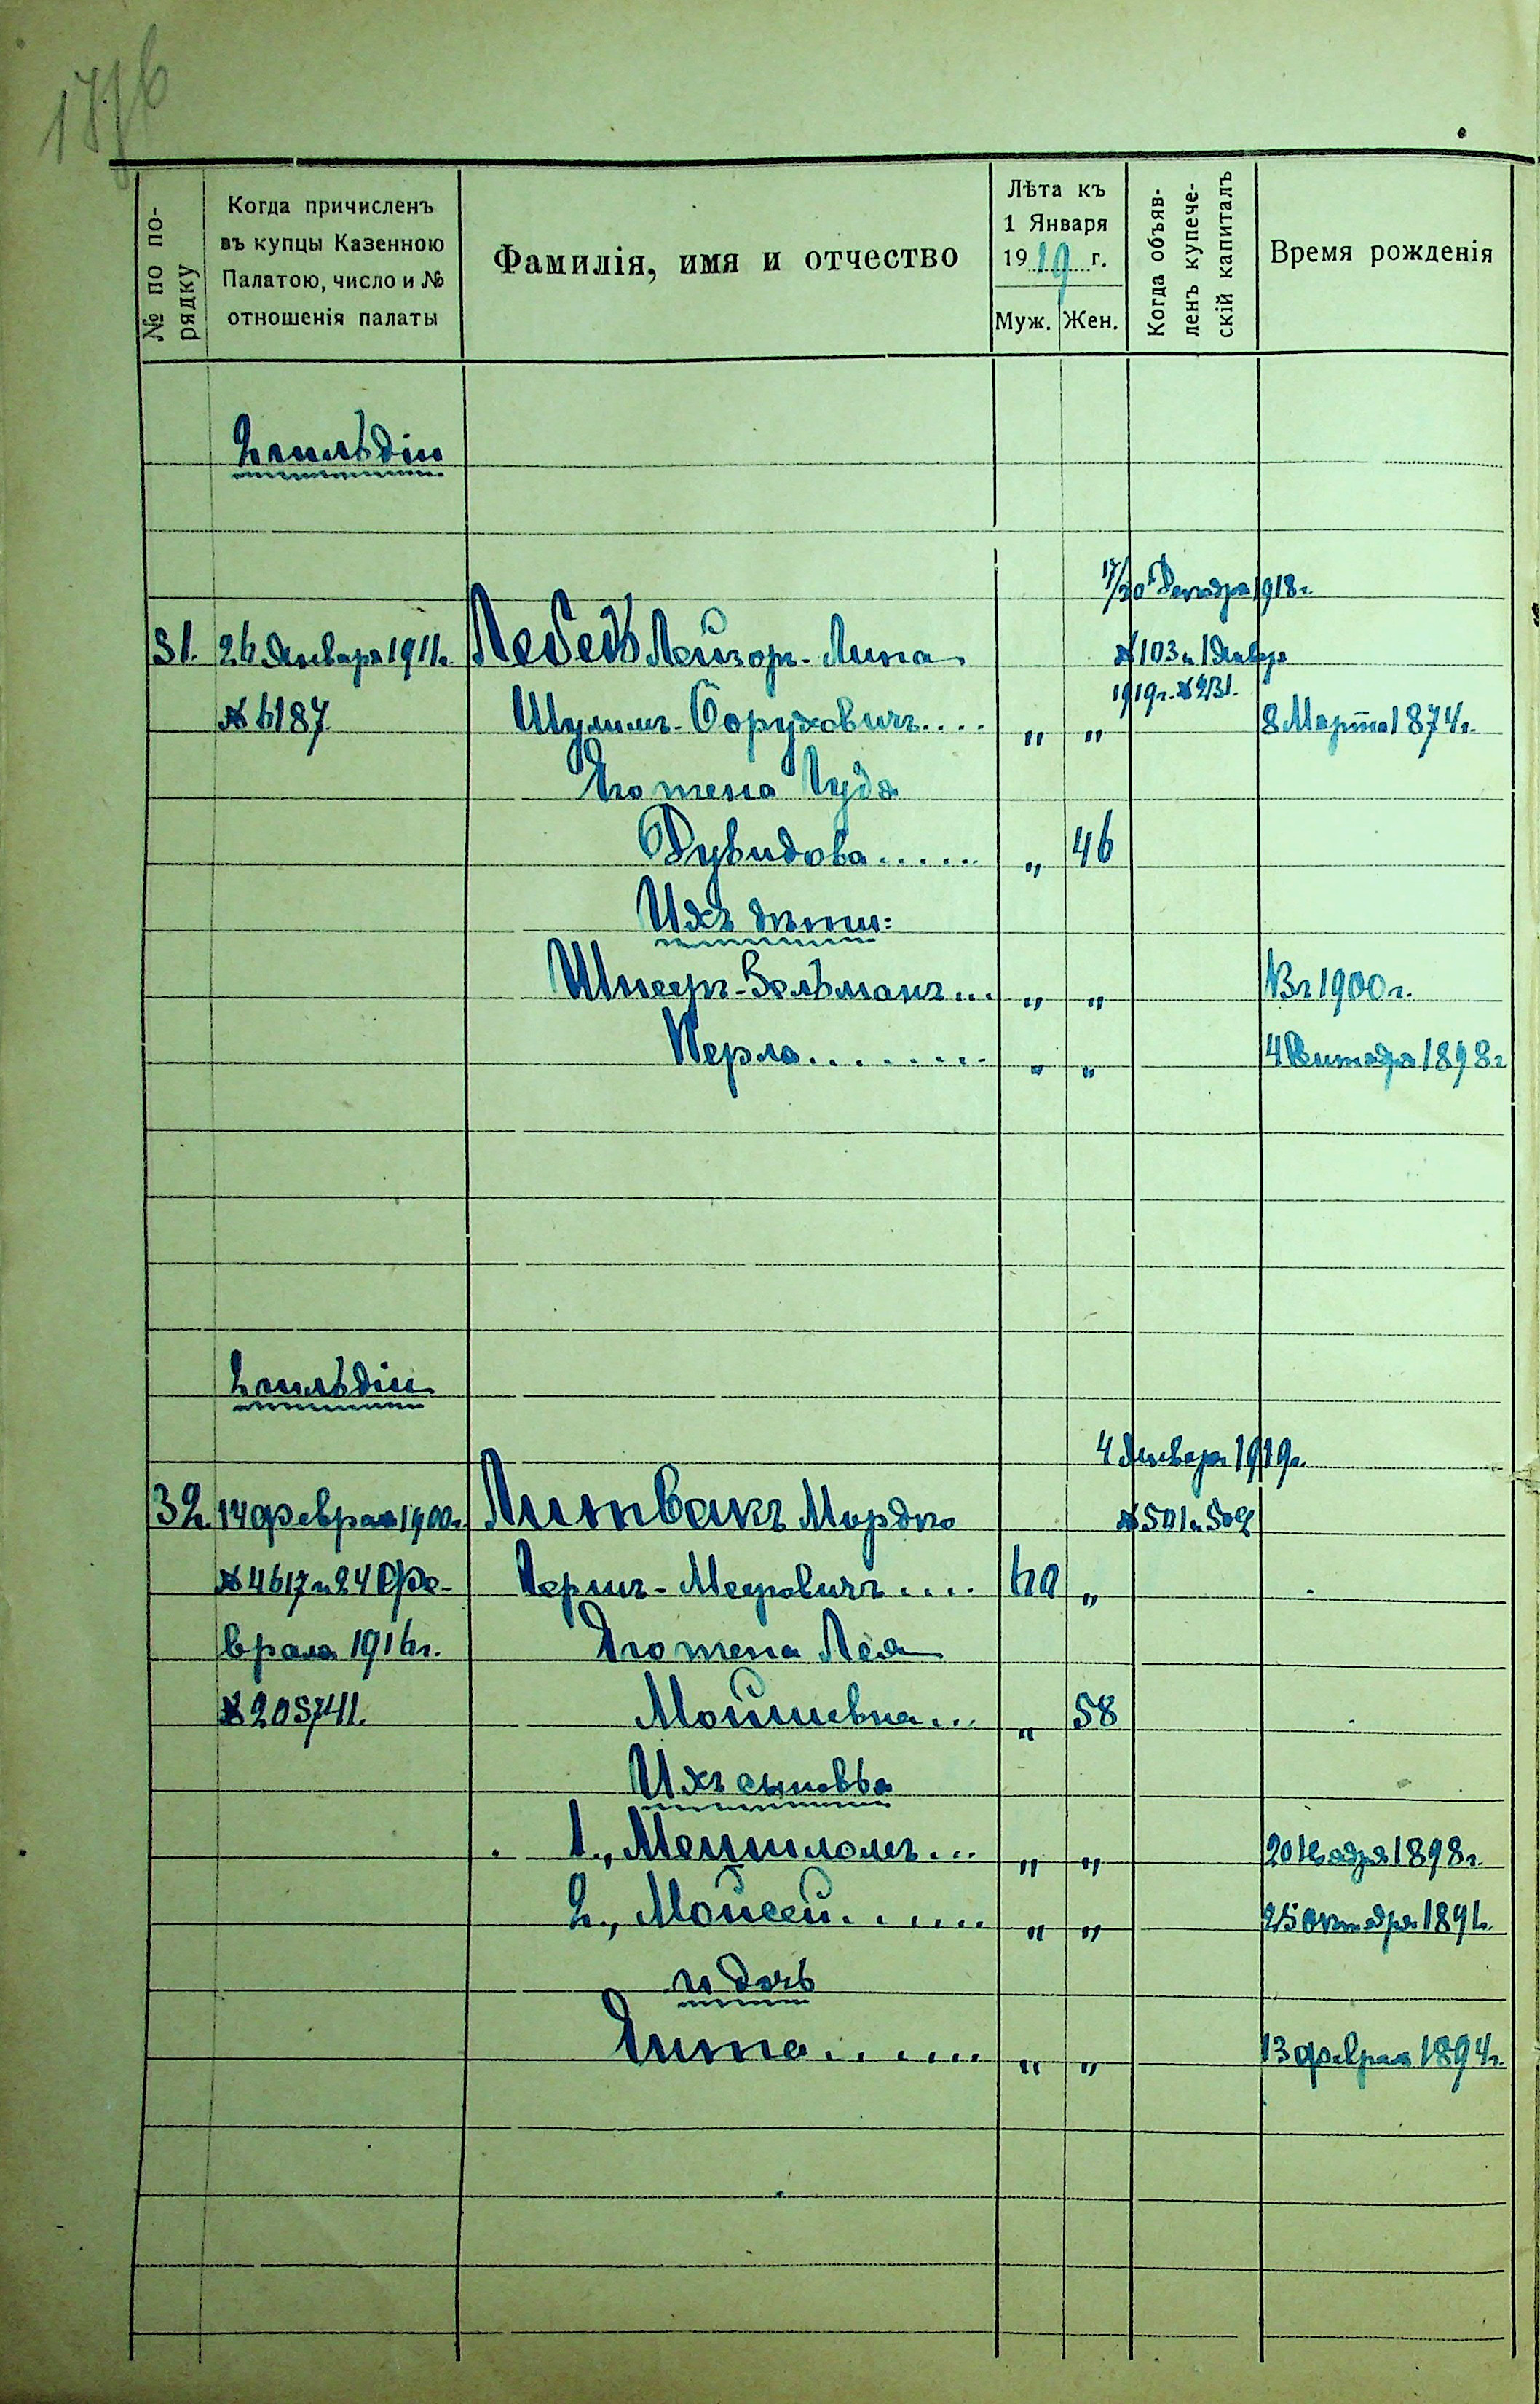 № по порядку
Когда причисленъ
въ купцы Казенною
Палатою, число и №
отношенія палаты
Фамилія, имя и отчество
Лѣта къ
1 Января
1919 г.
Муж. Жен.
Когда объяв-
ленъ купече-
скій капиталъ
Время рожденія
2 гильдіи
17/30 Декабря 1918 г.
31. 26 Января 1911 г. Лебедь Лейзоръ-Липа №103 и 1 Января
№ 6187 Шулимъ-Боруховичъ.... „ „ 1919 г. № 2131. 8 Марта 1874 г.
Его жена Гудя
Дувидова...... „ 46
Ихъ дѣти:
Шнееръ-Зельманъ... „ „ В 1900 г.
Перла........ „ „ 4 Сентября 1898 г.
2 гильдіи
4 Января 1919 г.
32. 14 февраля 1900 г. Литвакъ Мордко № 501 и 502
№ 4617 и 24 Фе- Гершъ-Мееровичъ.... 60 „
враля 1916 г. Его жена Лея
№ 205741. Мойшевна... „ 58
Ихъ сыновья
1., Мешиломъ... „ „ 20 Ноября 1898 г.
2., Мойсей....... „ „ 25 октября 1891 г.
и дочь
Гитта....... „ „ 13 февраля 1894 г.